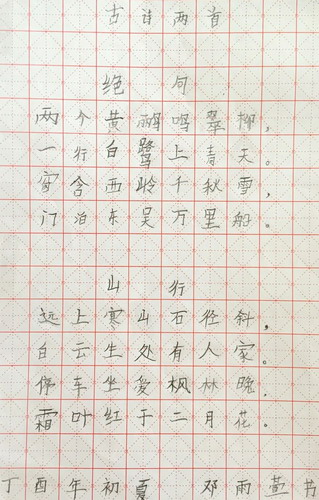 古诗两首
绝句
两个黄鹂鸣翠柳，
一行白鹭上青天。
窗含西岭千秋雪，
门泊东吴万里船。
山行
远上寒山石径斜，
白云生处有人家。
停车坐爱枫林晚
霜叶红于二月花。
丁酉年初夏 邓雨萱书